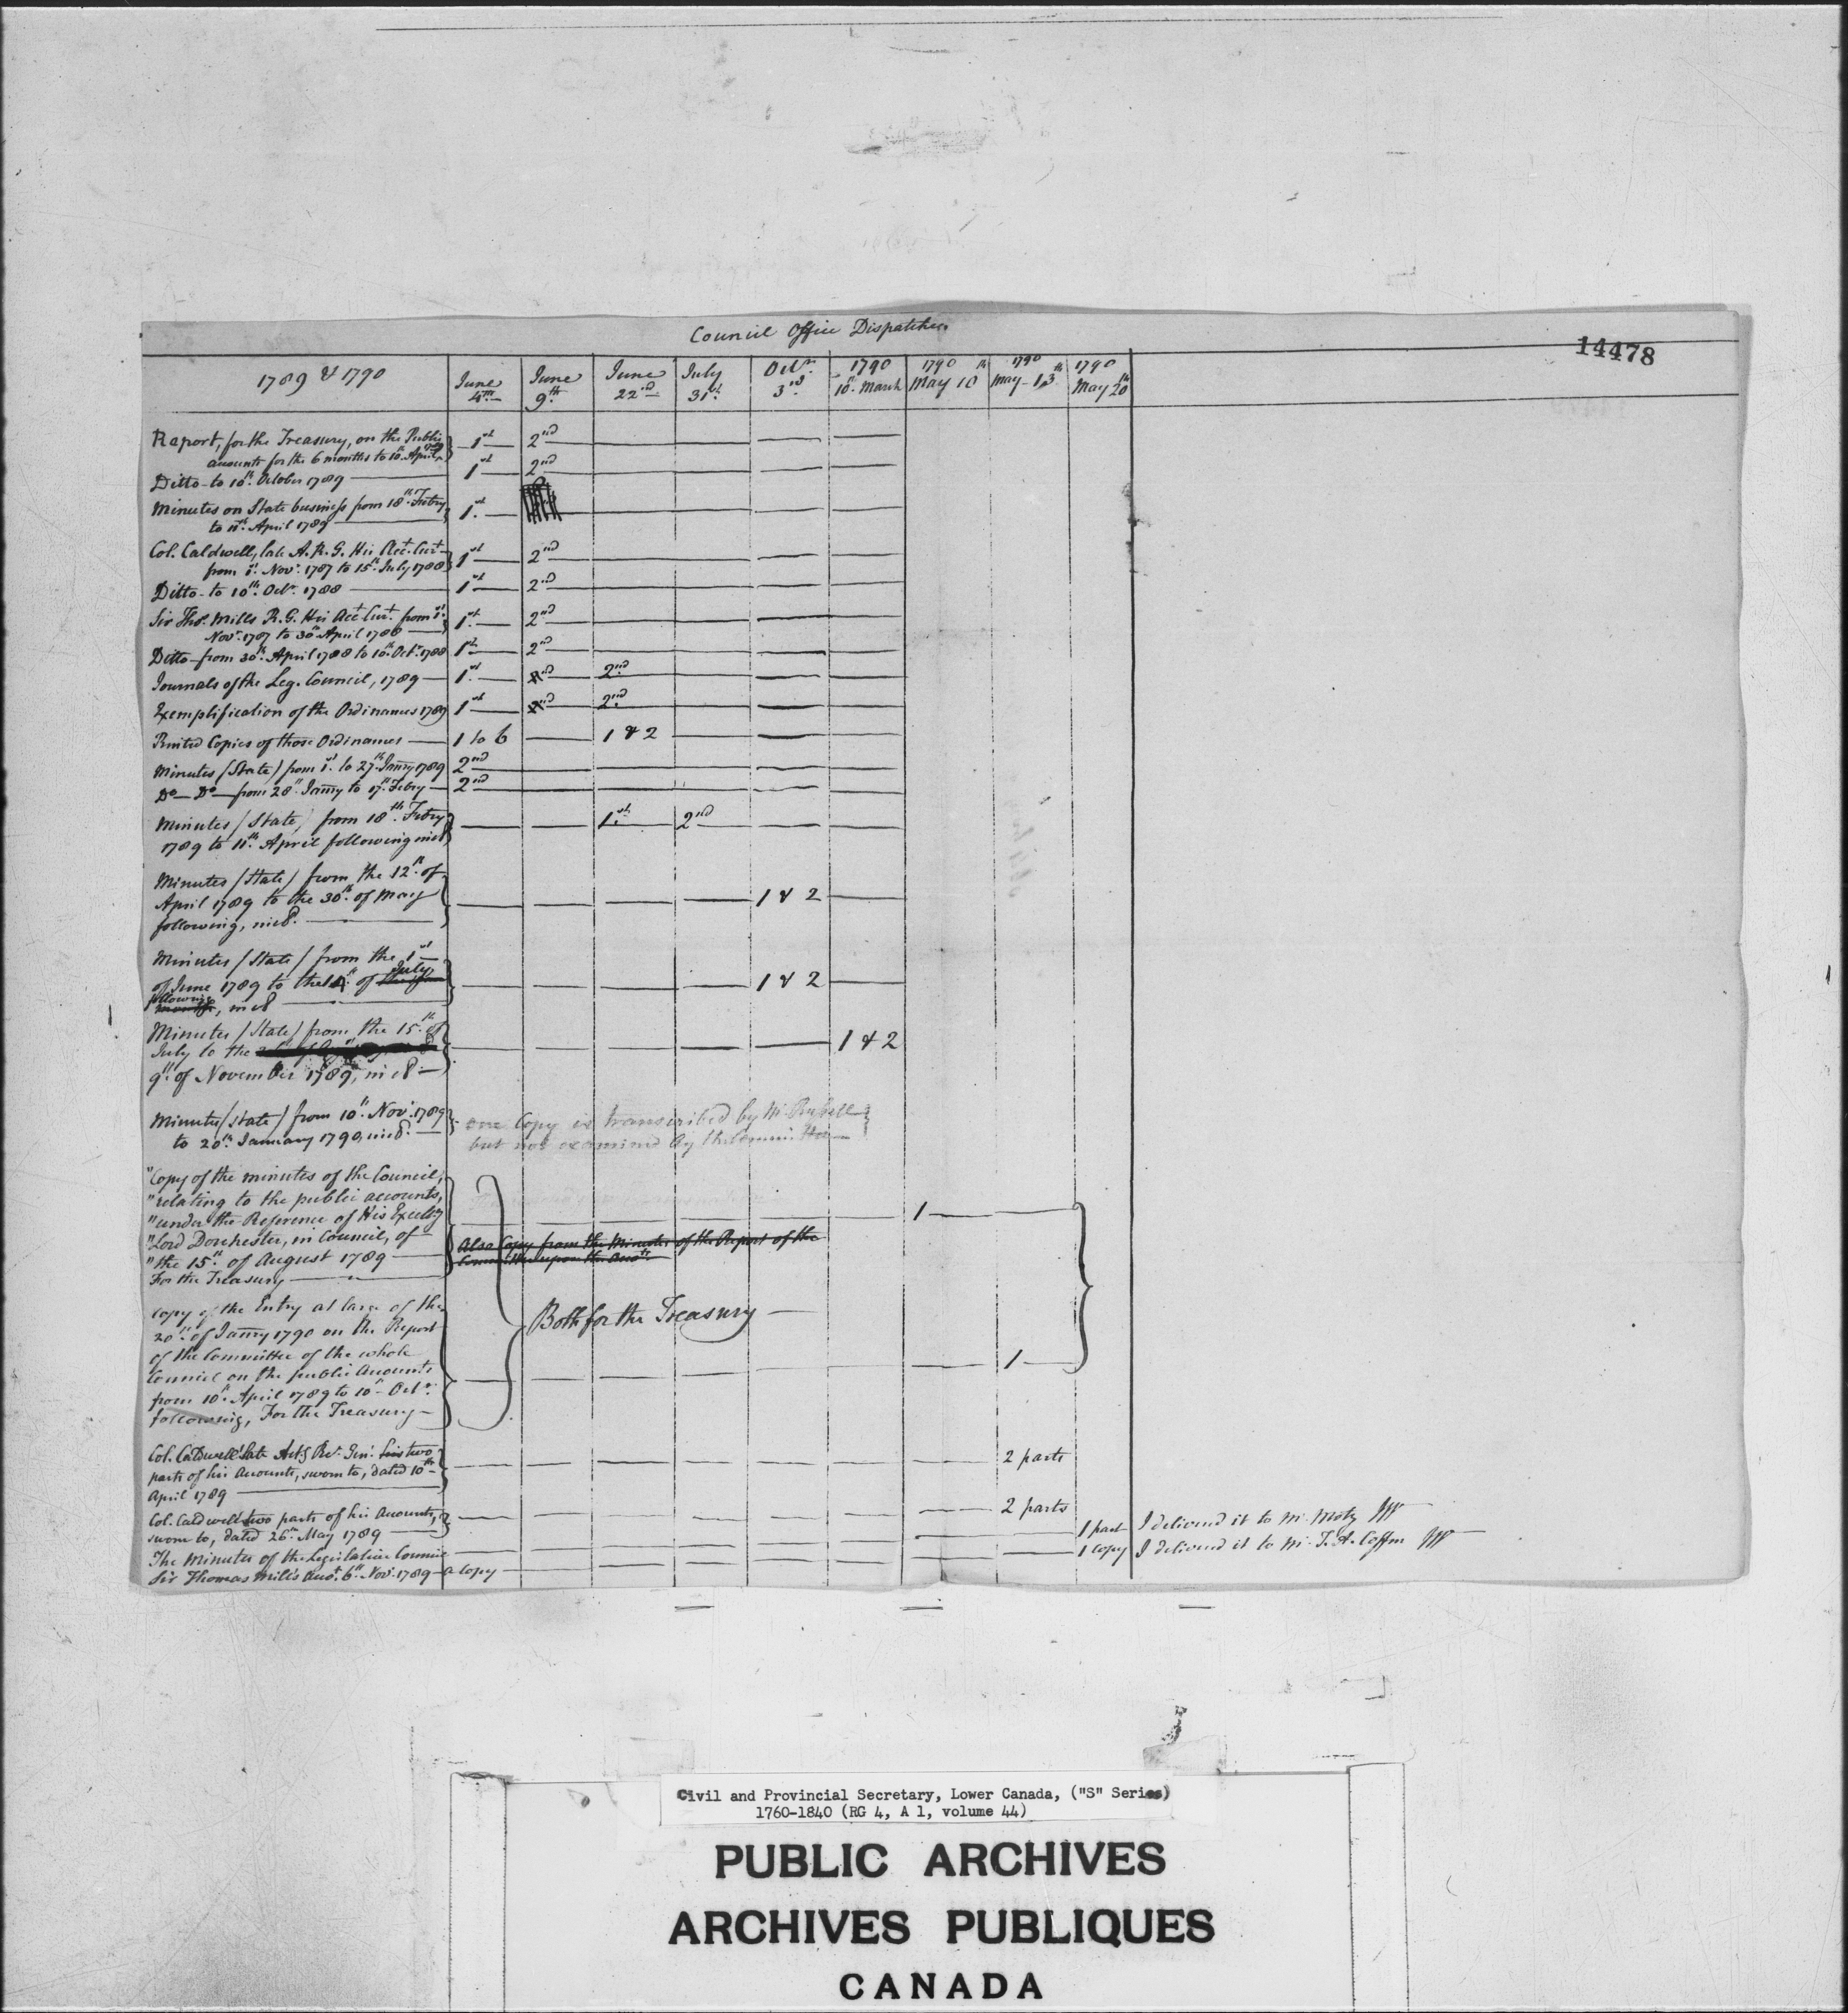 Council Office Dispatches
14478
1789 & 1790 June 4th June 9th June 22nd July 31st Octr. 3rd 1790 10th March 1790 May 10th 1790 May 13th 1790 May 20th
Report, for the Treasury, on the Public 1st 2nd
accounts for the 6 months to 10th April 1789
Ditto to 10th October 1789 1st 2nd
Minutes on State business from 18th Febry 1st
to 11th April 1789
Col. Caldwell, late A. R. G. His Acct. Curt. 1st 2nd
from 1st Novr. 1787 to 15th July 1788
Ditto to 10th Octr. 1788 1st 2nd
Sir Thos. Mills R. G. His Acct Curt. from 1st 1st 2nd
Novr. 1787 to 30th April 1788
Ditto from 30th April 1788 to 10th Octr. 1788 1st 2nd
Journals of the Leg. Council, 1789 1st 2nd 2nd
Exemplification of the Ordinances 1789 1st 2nd 2nd
Printed Copies of those Ordinances 1 to 6 1 & 2
Minutes (State) from 1st to 27th Janry 1789 2nd
Do Do from 28th Janry to 17th Febry 2nd
Minutes (State) from 18th Febry 1st 2nd
1789 to 11th April following incl
Minutes (State) from the 12th of
April 1789 to the 30th of May 1 & 2
following, incl.
Minutes (State) from the 1st
of June 1789 to the 14th of July 1 & 2
following, incl
Minutes (State) from the 15th of
July to the 1 & 2
9th of November 1789, incl
Minutes (State) from 10th Novr. 1789 one Copy is transcribed by Mr.
to 20th January 1790, incl. but not examined by the Committee
"Copy of the minutes of the Council,
"relating to the public accounts,
"under the Reference of His Excelly 1
"Lord Dorchester, in Council, of Also Copy from the Minutes of the Report of the
"the 15th of August 1789 Committee upon the Accts
For the Treasury
Copy of the Entry at large of the Both for the Treasury
20th of Janry 1790 on the Report
of the Committee of the whole
Council on the public Accounts 1
from 10th April 1789 to 10th Octr.
following, For the Treasury
Col. Caldwell late Actg Rr. Genl. his two 2 parts
parts of his Accounts, sworn to, dated 10th
April 1789
Col. Caldwell two parts of his Accounts, 2 parts
sworn to, dated 26th May 1789
The Minutes of the Legislative Council 1 part I delivered it to Mr. Motz
Sir Thomas Mills Acct. 6th Novr. 1789 a Copy 1 copy I delivered it to Mr. T. A. Coffin
Civil and Provincial Secretary, Lower Canada, ("S" Series)
1760-1840 (RG 4, A 1, volume 44)
PUBLIC ARCHIVES
ARCHIVES PUBLIQUES
CANADA